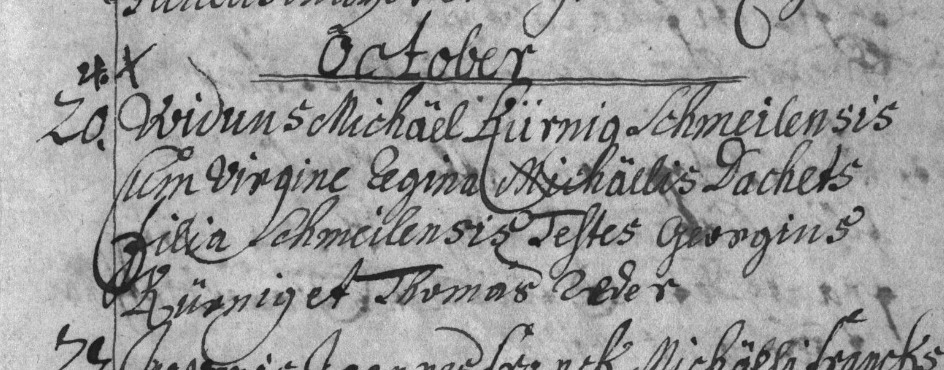 October
20. Viduus Michäel Kürnig Schmeilensis
Cum Virgine Regina Michäelis Dachets
filia Schmeilensis Testes Georgius
Kürnig et Thomas Reder
Michäelis francks